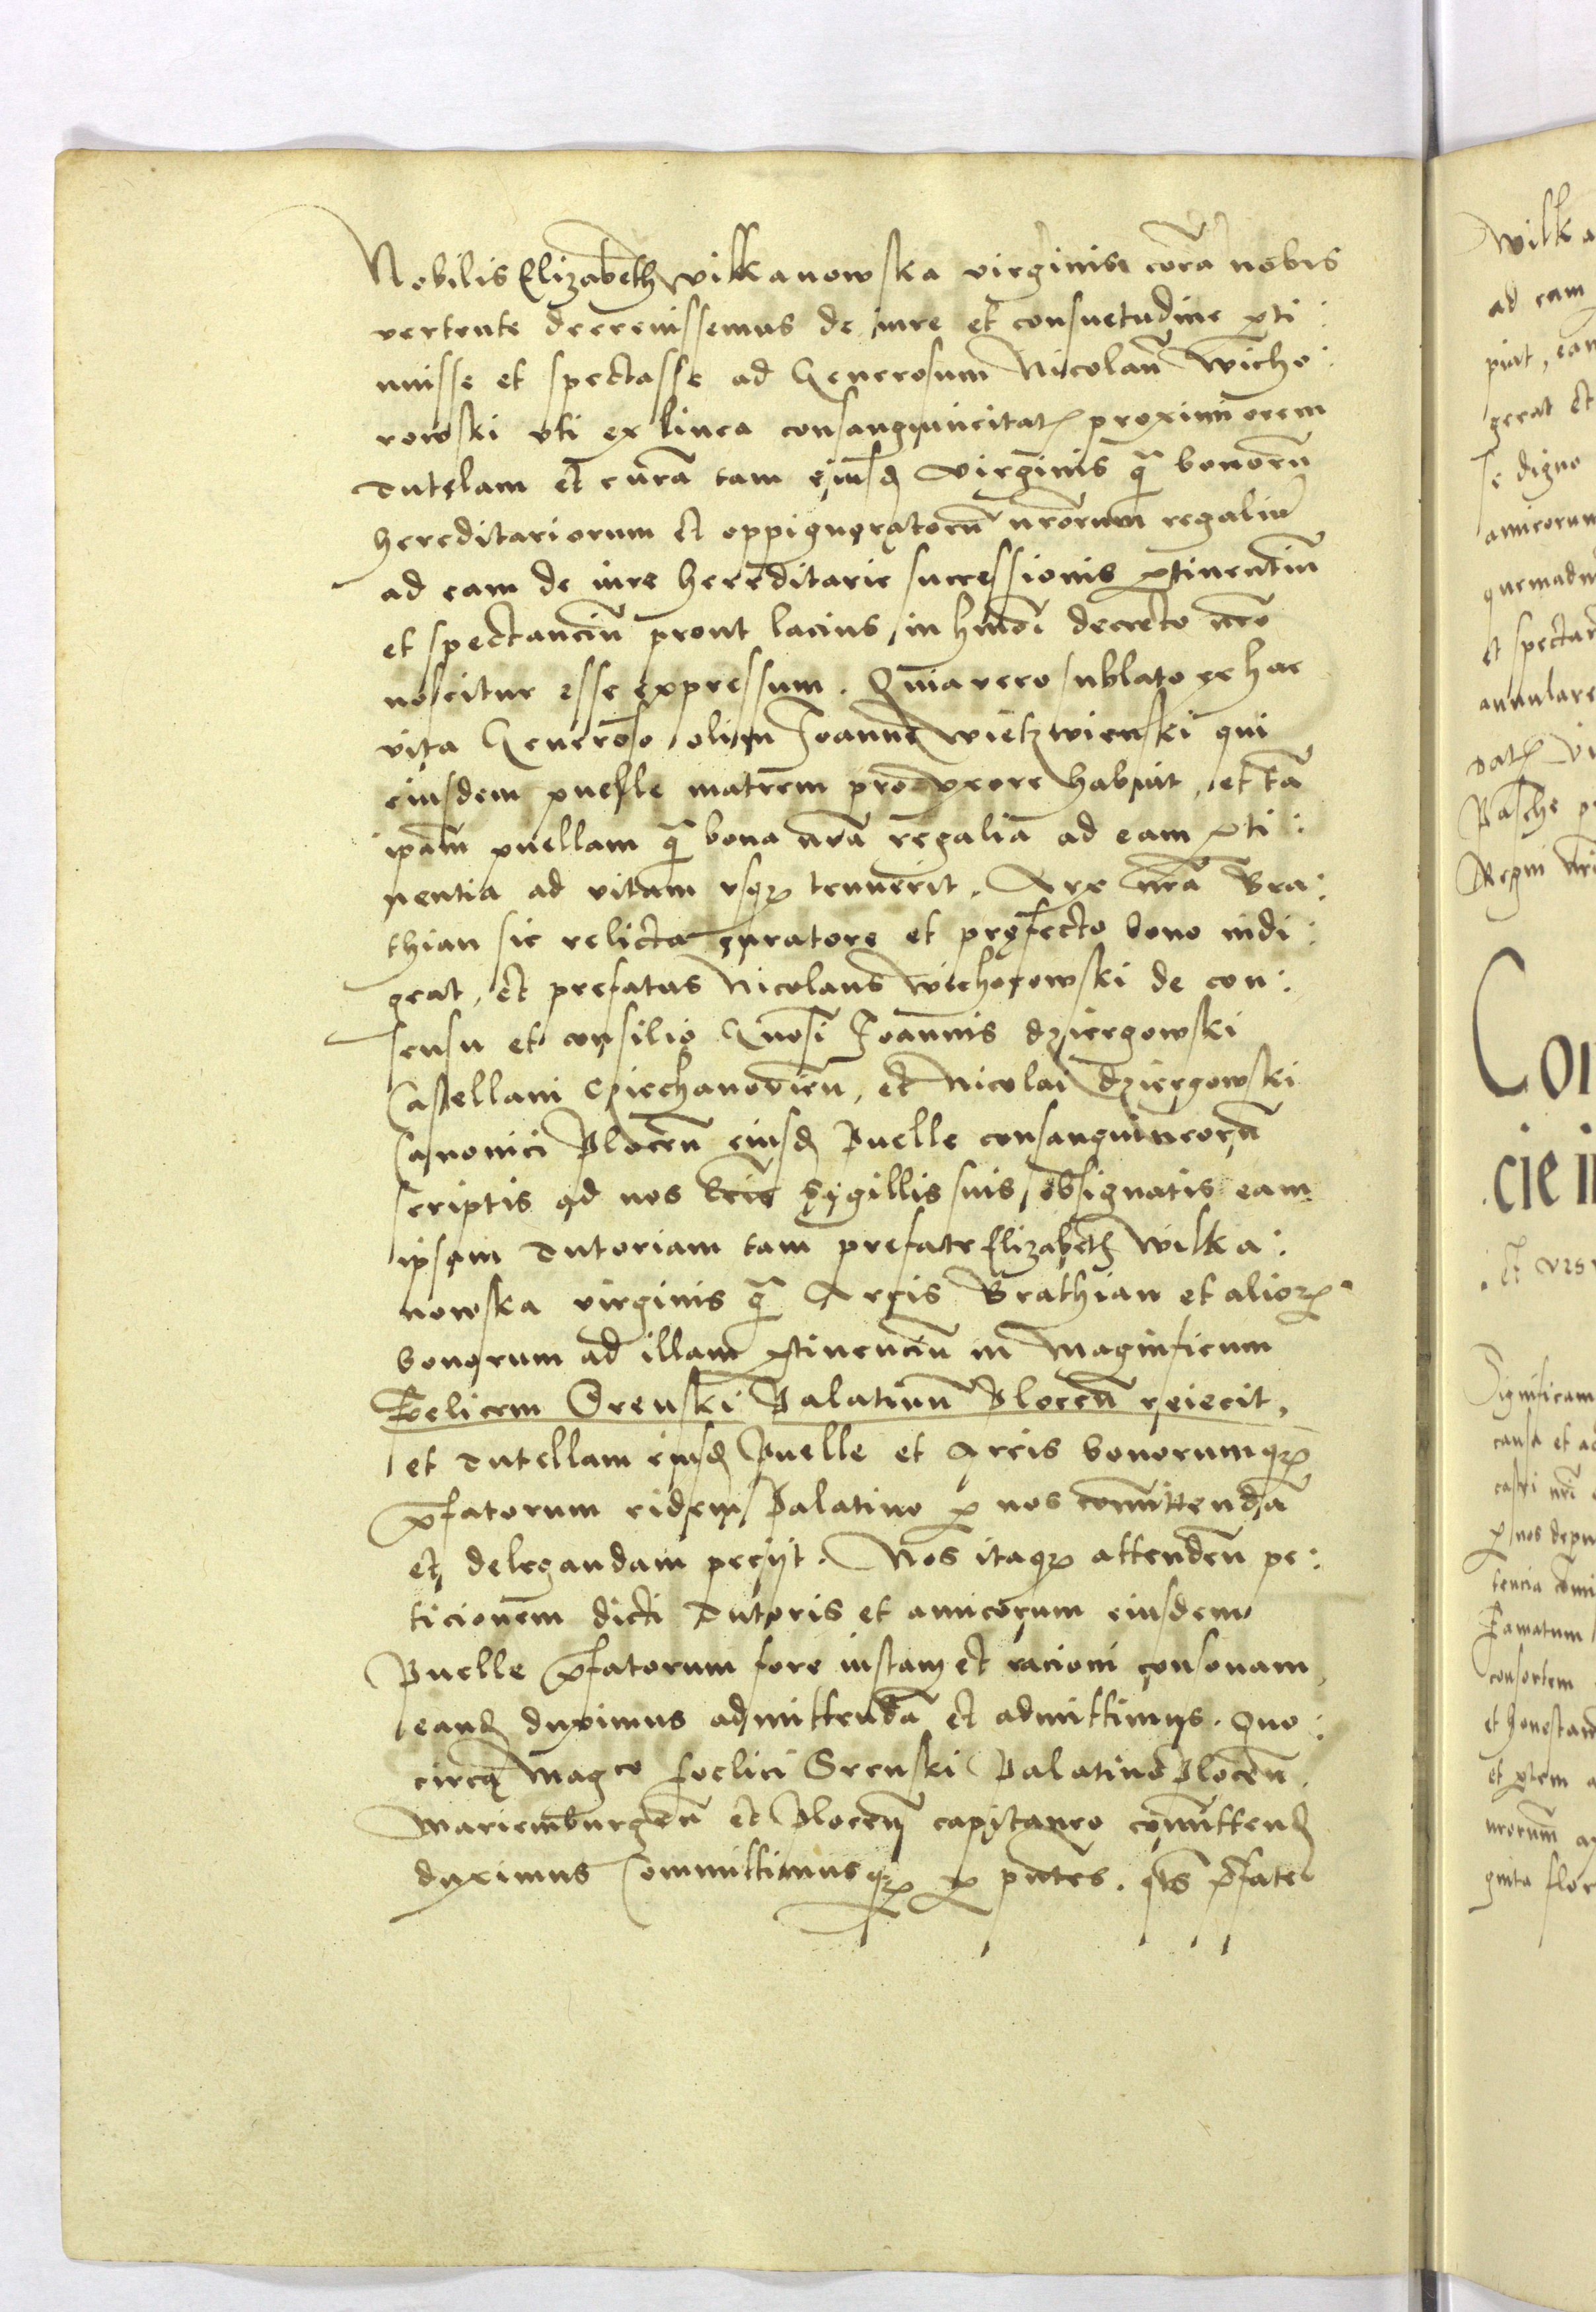 Nobilis Elizabeth wilkanowska virginis corā nobis
vertente decrevissemus de iure et consuetudine ꝑti:
nuisse et spectasse ad Generosum Nicolaū Wicho:
rowski vti ex linea consanguineitatꝭ proximiorem
Tutelam et curā tam eiusd virginis qͣ bonorū
hereditariorum et oppignoratorū nrorum regaliū
ad eam de iure hereditarie successionis ꝑtinentiū
et spectanciū prout lacius in hmoi decreto nro
noscitur esse expressum. Quia vero sublato ex hac
vita Generoso olim Joanne wietzwienski qui
eiusdem puelle matrem pro vxore habuit, et tā
ipām puellam qͣ bona nrā regalia ad eam ꝑti:
nentia ad vitam vsqꝫ tenuerit. Arx nrā Bra:
thian sic relicta curatore et prefecto bono indi:
geat, et prefatus Nicolaus Wichorowski de con:
sensu et consilio Gnosi Joannis dziergowski
Castellani Cziechanovien̄, et Nicolai Dziergowski
Canonici Plocen̄ eiusd Puelle consanguineorū
scriptis ad nos lris Sygillis suis obsignatis eam
ipsam Tutoriam tam prefate Elizabeth Wilka:
nowska virginis qͣ Arcis Brathian et alioꝝ
bonorum ad illam ꝑtinenciū in Magnificum
Felicem Srenski Palatinū Plocen̄ reiecit,
et Tutellam eiusd Puelle et Arcis bonorumqꝫ
p̄fatorum eidem Palatino ꝑ nos committendā
et delegandam peciit. Nos itaqꝫ attenden̄ pe:
ticionem dicti Tutoris et amicorum eiusdem
Puelle p̄fatorum fore iustam et racioni consonam,
eand duximus admittendā et admittimus. Quo:
circa Magco Foelici Srenski Palatino Plocen̄.
Mariemburgen̄ et Plocen̄ capitaneo committend
duximus Committimusqꝫ ꝑ pntes. qts p̄fate
Wilka
ad eam
piat, eam
gerat et
se digno
amicorum
quemadm
et spectar
annulare
Datꝭ
Pasche
Regni nri
Con
cie i
Significam
causa et ad
castri nri
ꝑ nos depu
tencia
Famatum
consortem
et honestam
nrorum
ginta flor